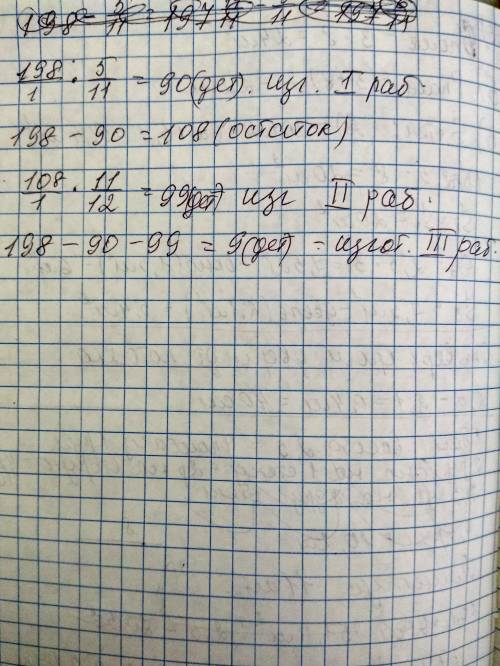 198/1 · 5/11 = 90(дет). изг. I раб.
198 - 90 = 108 (остаток)
108/1 · 11/12 = 99(дет) изг II раб.
198 - 90 - 99 = 9(дет) - изгот. III раб.